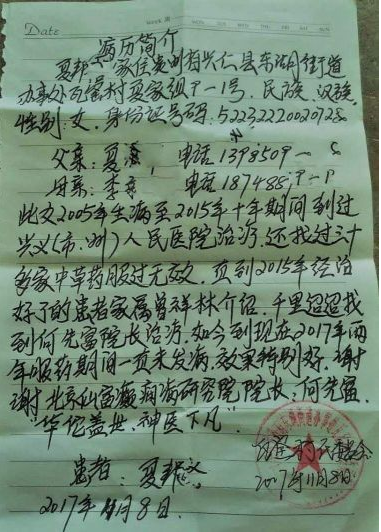 Date
病历简介
夏邦 家住贵州省兴仁县东湖街道
办事处瓦窑村夏家组 一1号，民族：汉族，
性别：女，身份证号码：5223222002
父亲：夏 电话1398509
母亲：李 电话187488
此女2005年生病至2015年十年期间到过
兴义(市、州)人民医院治疗，还找过三十
多家中草药服过无效，直到2015年经治
好了的患者家属曾祥林介绍，千里迢迢找
到何先富院长治疗，如今到现在2017年两
年服药期间一直未发病，效果特别好，谢
谢北京仙宝癫痫病研究院院长：何先富，
"华佗盖世，神医下凡"
情况属实
2017年11月8日
患者：夏邦
2017年11月8日